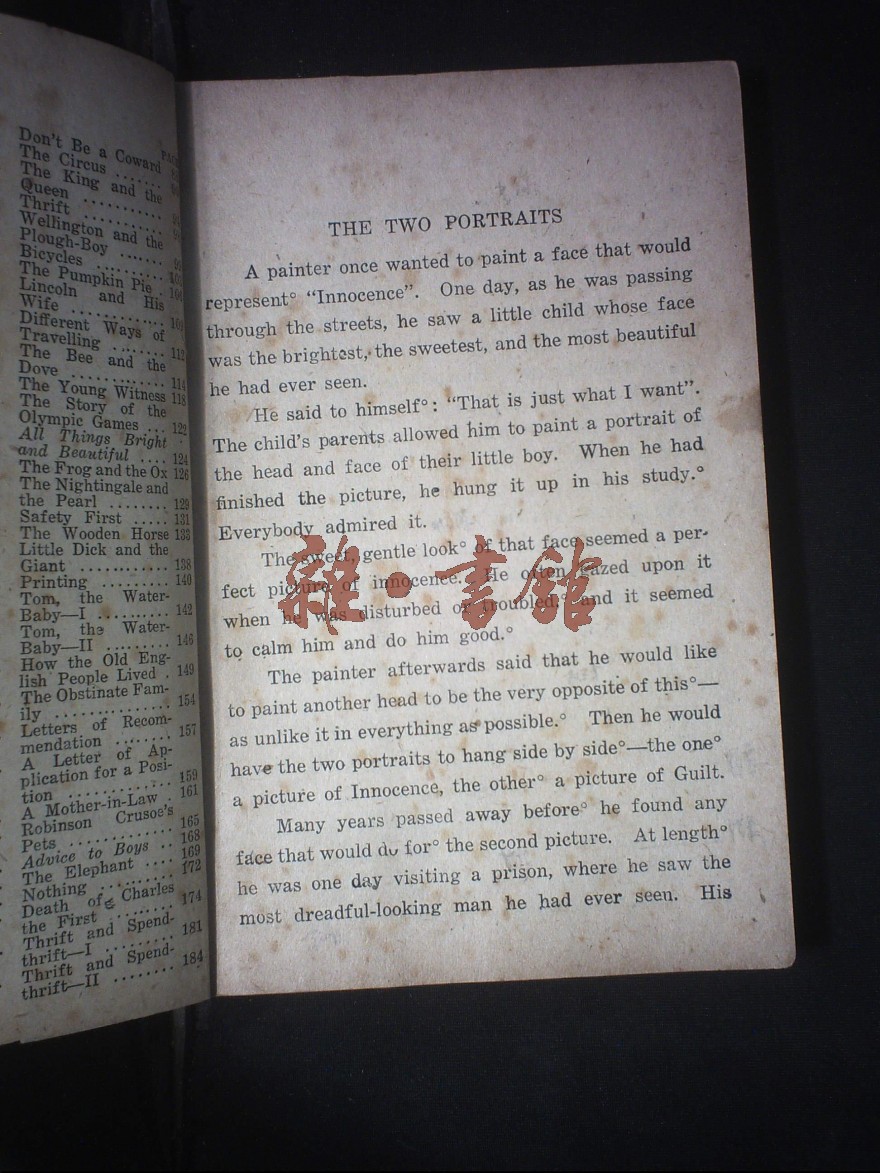 PAGE
Don't Be a Coward
The Circus .......
The King and the
Queen ...........
Thrift ...........
Wellington and the
Plough-Boy ......
Bicycles ..........
The Pumpkin Pie .
Lincoln and His
Wife .............
Different Ways of
Travelling ....... 112
The Bee and the
Dove ............. 114
The Young Witness 118
The Story of the
Olympic Games ... 122
All Things Bright
and Beautiful .... 124
The Frog and the Ox 126
The Nightingale and
the Pearl ........ 129
Safety First ..... 131
The Wooden Horse 133
Little Dick and the
Giant ............ 138
Printing ......... 140
Tom, the Water-
Baby—I .......... 142
Tom, the Water-
Baby—II ......... 146
How the Old Eng-
lish People Lived . 149
The Obstinate Fam-
ily .............. 154
Letters of Recom-
mendation ........ 157
A Letter of Ap-
plication for a Posi-
tion ............. 159
A Mother-in-Law . 161
Robinson Crusoe's
Pets ............. 165
Advice to Boys .. 168
The Elephant .... 169
Nothing ......... 172
Death of Charles
the First ........ 174
Thrift and Spend-
thrift—I ......... 181
Thrift and Spend-
thrift—II ........ 184
THE TWO PORTRAITS
A painter once wanted to paint a face that would
represent° “Innocence”. One day, as he was passing
through the streets, he saw a little child whose face
was the brightest, the sweetest, and the most beautiful
he had ever seen.
He said to himself°: “That is just what I want”.
The child's parents allowed him to paint a portrait of
the head and face of their little boy. When he had
finished the picture, he hung it up in his study.°
Everybody admired it.
The sweet, gentle look° of that face seemed a per-
fect picture of innocence. He often gazed upon it
when he was disturbed or troubled,° and it seemed
to calm him and do him good.°
The painter afterwards said that he would like
to paint another head to be the very opposite of this°—
as unlike it in everything as possible.° Then he would
have the two portraits to hang side by side°—the one°
a picture of Innocence, the other° a picture of Guilt.
Many years passed away before° he found any
face that would do for° the second picture. At length°
he was one day visiting a prison, where he saw the
most dreadful-looking man he had ever seen. His
雜·書館